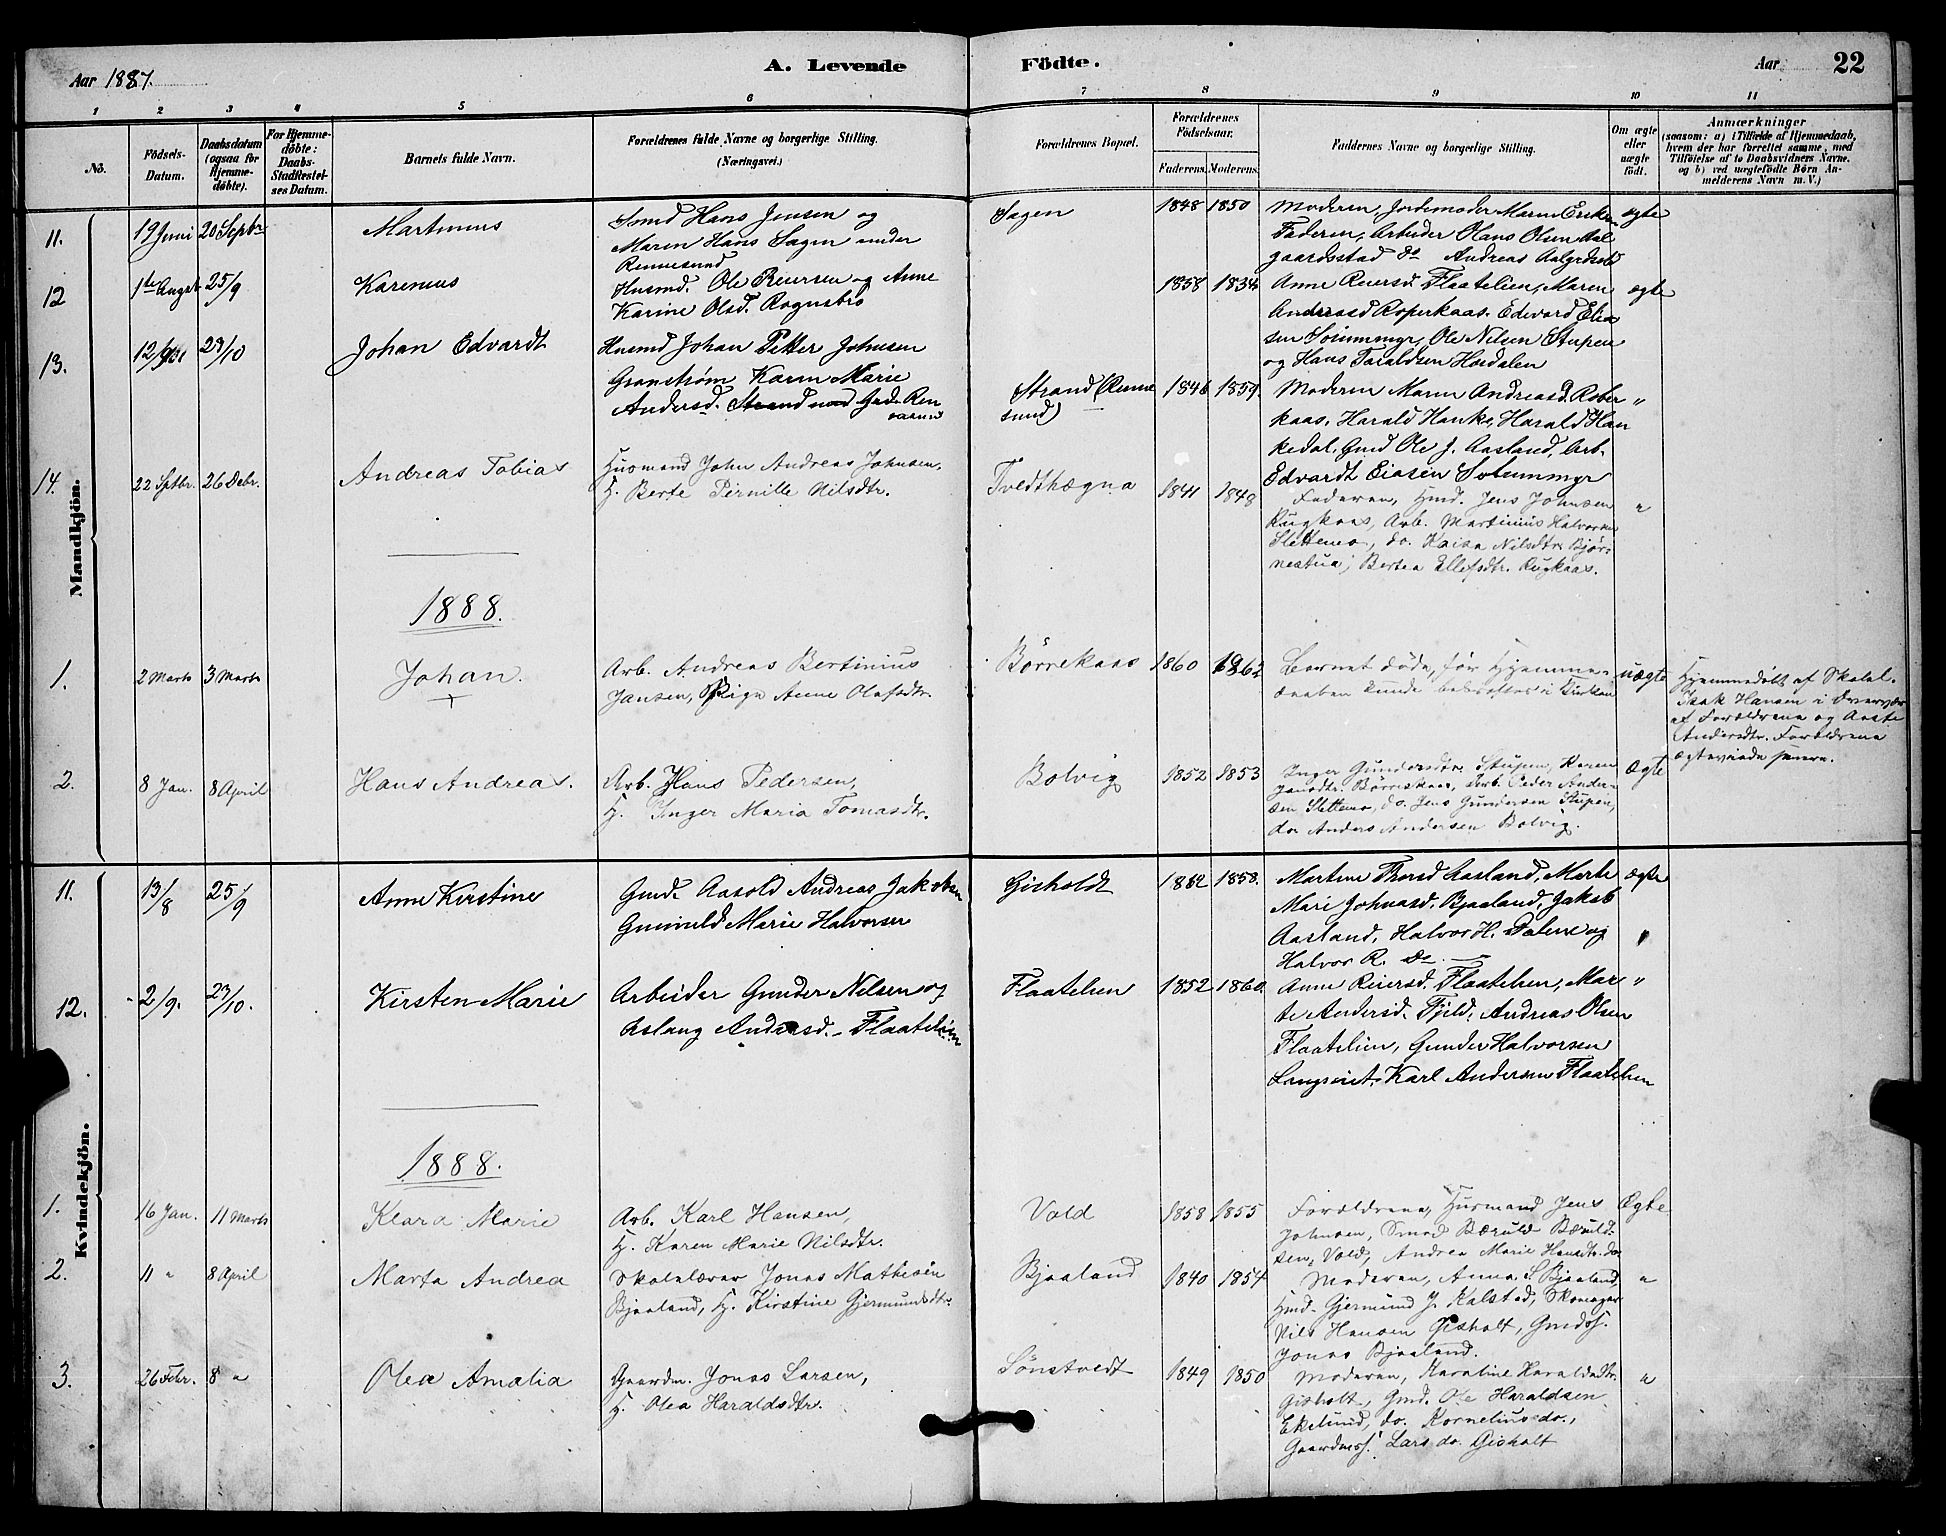 Aar 1887.
A. Levende
Födte.
Aar
22
1 2 3 4 5 6 7 8 9 10 11
No.
Födsels-
Datum.
Daabsdatum
(ogsaa for
Hjemme-
døbte).
For Hjemme-
døbte:
Daabs-
Stadfæstel-
ses Datum.
Barnets fulde Navn.
Forældrenes fulde Navne og borgerlige Stilling.
(Næringsvei.)
Forældrenes Bopæl.
Forældrenes
Födselsaar.
Faderens. Moderens.
Faddernes Navne og borgerlige Stilling.
Om ægte
eller
uægte
født.
Anmærkninger
(saasom: a) i Tilfælde af Hjemmedaab,
hvem der har forrettet samme, med
Tilföielse af to Daabsvidners Navne.
og b) ved uægtefödte Børn An-
melderens Navn m. V.)
Mandkjön.
11. 19 Juni 20 Septbr Martinius
Smed Hans Jensen og
Maren Hans Sagen under
Sagen 1848 1850
Moderen, Jordemoder Maren
Faderen, Arbeider Hans Olsen Aal
gaardsstad do Andreas
ægte
12 1ste August 25/9 Karenius
Husmd. Ole Reiersen og Anne
Karine Olsd. Rognsbro
1858 1834
Anne Reiersd. Flaatelien, Maren
Andreasd Roperkaas. Edevard Elia
sen Ole Nilsen Stupen
og Hans Taraldsen
ægte
13. 23/10 Johan Edvardt
Husmd Johan Petter Johnsen
Granstrøm Karen Marie
Andersd. Strand
Strand (Renne
sund) 1846 1859
Moderen Maren Andreasd. Rober
kaas, Harald Hanke, Harald Han
kedal, Gmd Ole J. Aasland, Arb.
Edvardt Eiasen
"
14. 22 Septbr. 26 Debr. Andreas Tobias
Husmand John Andreas Johnsen,
H. Berte Pernille Nilsdtr.
Tvedthægna 1841 1848
Faderen, Hmd. Jens Johnsen
Rugkaas, Arb. Martinius Halvorsen
Slettemo, do. Kaisa Nilsdtr. Bjør-
nestua, Bertea Ellefsdtr. Rugkaas.
"
1888.
1. 2 Marts 3 Marts Johan.
Arb. Andreas Bertinius
Jansen, Pige Anne Olafsdtr.
Børrekaas 1860 1862
Barnet døde, før Hjemme-
daaben kunde bekræftes i Kirken
uægte
Hjemmedøbt af Skolel.
Isak Hansen i Overvær
af Forældrene og Aaste
Andersdtr. Forældrene
ægteviede senere.
2. 8 Jan. 8 April Hans Andreas.
Arb. Hans Pedersen,
H. Inger Maria Tomasdtr.
Bolvig 1852 1853
Inger Gundersdtr. Stupen, Karen
Jansdtr. Børrekaas, Arb. Peder Ander-
sen Slettemo, do. Jens Gundersen Stupen,
do. Anders Andersen Bolvig.
Ægte
Kvindekjön.
11. 13/8 25/9 Anne Kirstine
Gmd. Aasold Andreas Jakobsen
Gunnild Marie Halvorsen
Gisholdt 1862 1858.
Martine Thorsd Aasland, Marte
Mari Johnasd. Bjaaland, Jakob
Aasland, Halvor H. og
Halvor R. do
ægte
12. 2/9. 23/10. Kirsten Marie
Arbeider Gunder Nilsen og
Aslaug Andersd. Flaatelien
Flaatelien 1852 1860.
Anne Reiersd. Flaatelien, Mar
te Andersd. Fjeld, Andreas Olsen
Flaatelien, Gunder Halvorsen
Karl Andersen Flaatelien
"
1888.
1. 16 Jan. 11 Marts Klara Marie
Arb. Karl Hansen,
H. Karen Marie Nilsdtr.
Vold 1858 1855
Forældrene, Husmand Jens
Johnsen, Smed Bæruld Bæruld-
sen, Vold, Andrea Marie Hansdtr. do.
Ægte
2. 11 " 8 April Marta Andrea
Skolelærer Jonas Mathisen
Bjaaland, H. Kirstine Gjermundsdtr.
Bjaaland 1840 1854
Moderen, Anna S. Bjaaland,
Hmd. Gjermund J. Kalstad, Skomager
Nils Hansen Gisholt, Gmdss.
Jonas Bjaaland.
"
3. 26 Febr. 8 " Olea Amalia
Gaardm. Jonas Larsen,
H. Olea Haraldsdtr.
Sønstvedt 1849 1850
Moderen, Karoline Haraldsdtr.
Gisholt, Gmd. Ole Haraldsen
Ekelund, do. Kornelius do.,
Gaardmss. Lars do. Gisholt
"